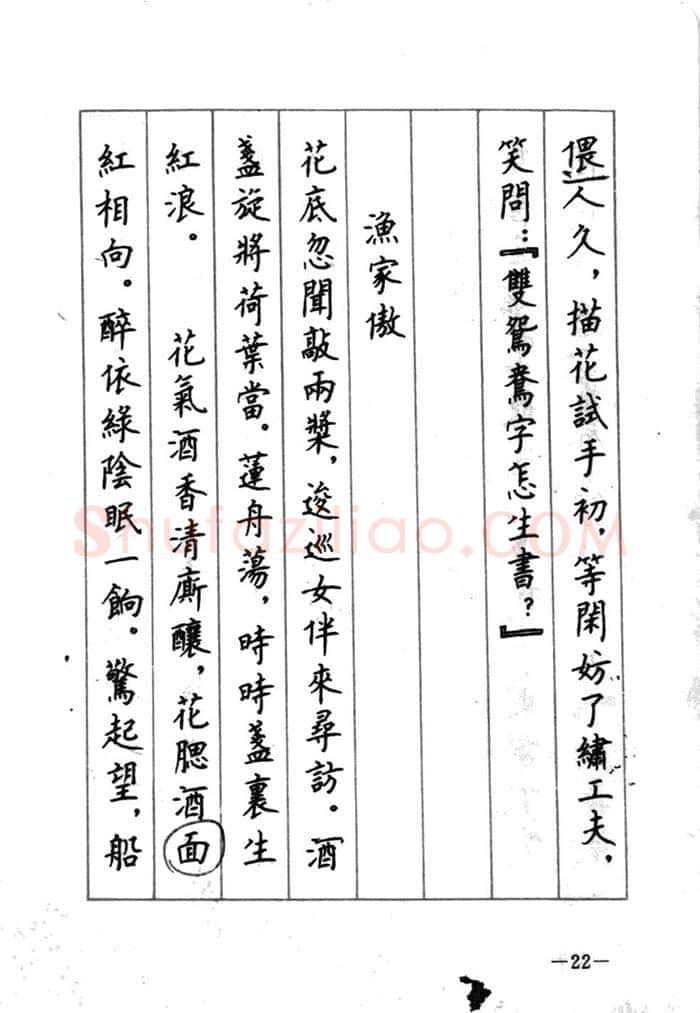 偎人久，描花試手初，等閑妨了繡工夫，
笑問：『雙鴛鴦字怎生書？』
漁家傲
花底忽聞敲兩槳，逡巡女伴來尋訪。酒
盞旋將荷葉當。蓮舟蕩，時時盞裏生
紅浪。　花氣酒香清廝釀，花腮酒面
紅相向。醉依綠陰眠一餉。驚起望，船
—22—
Shufaziliao.COM